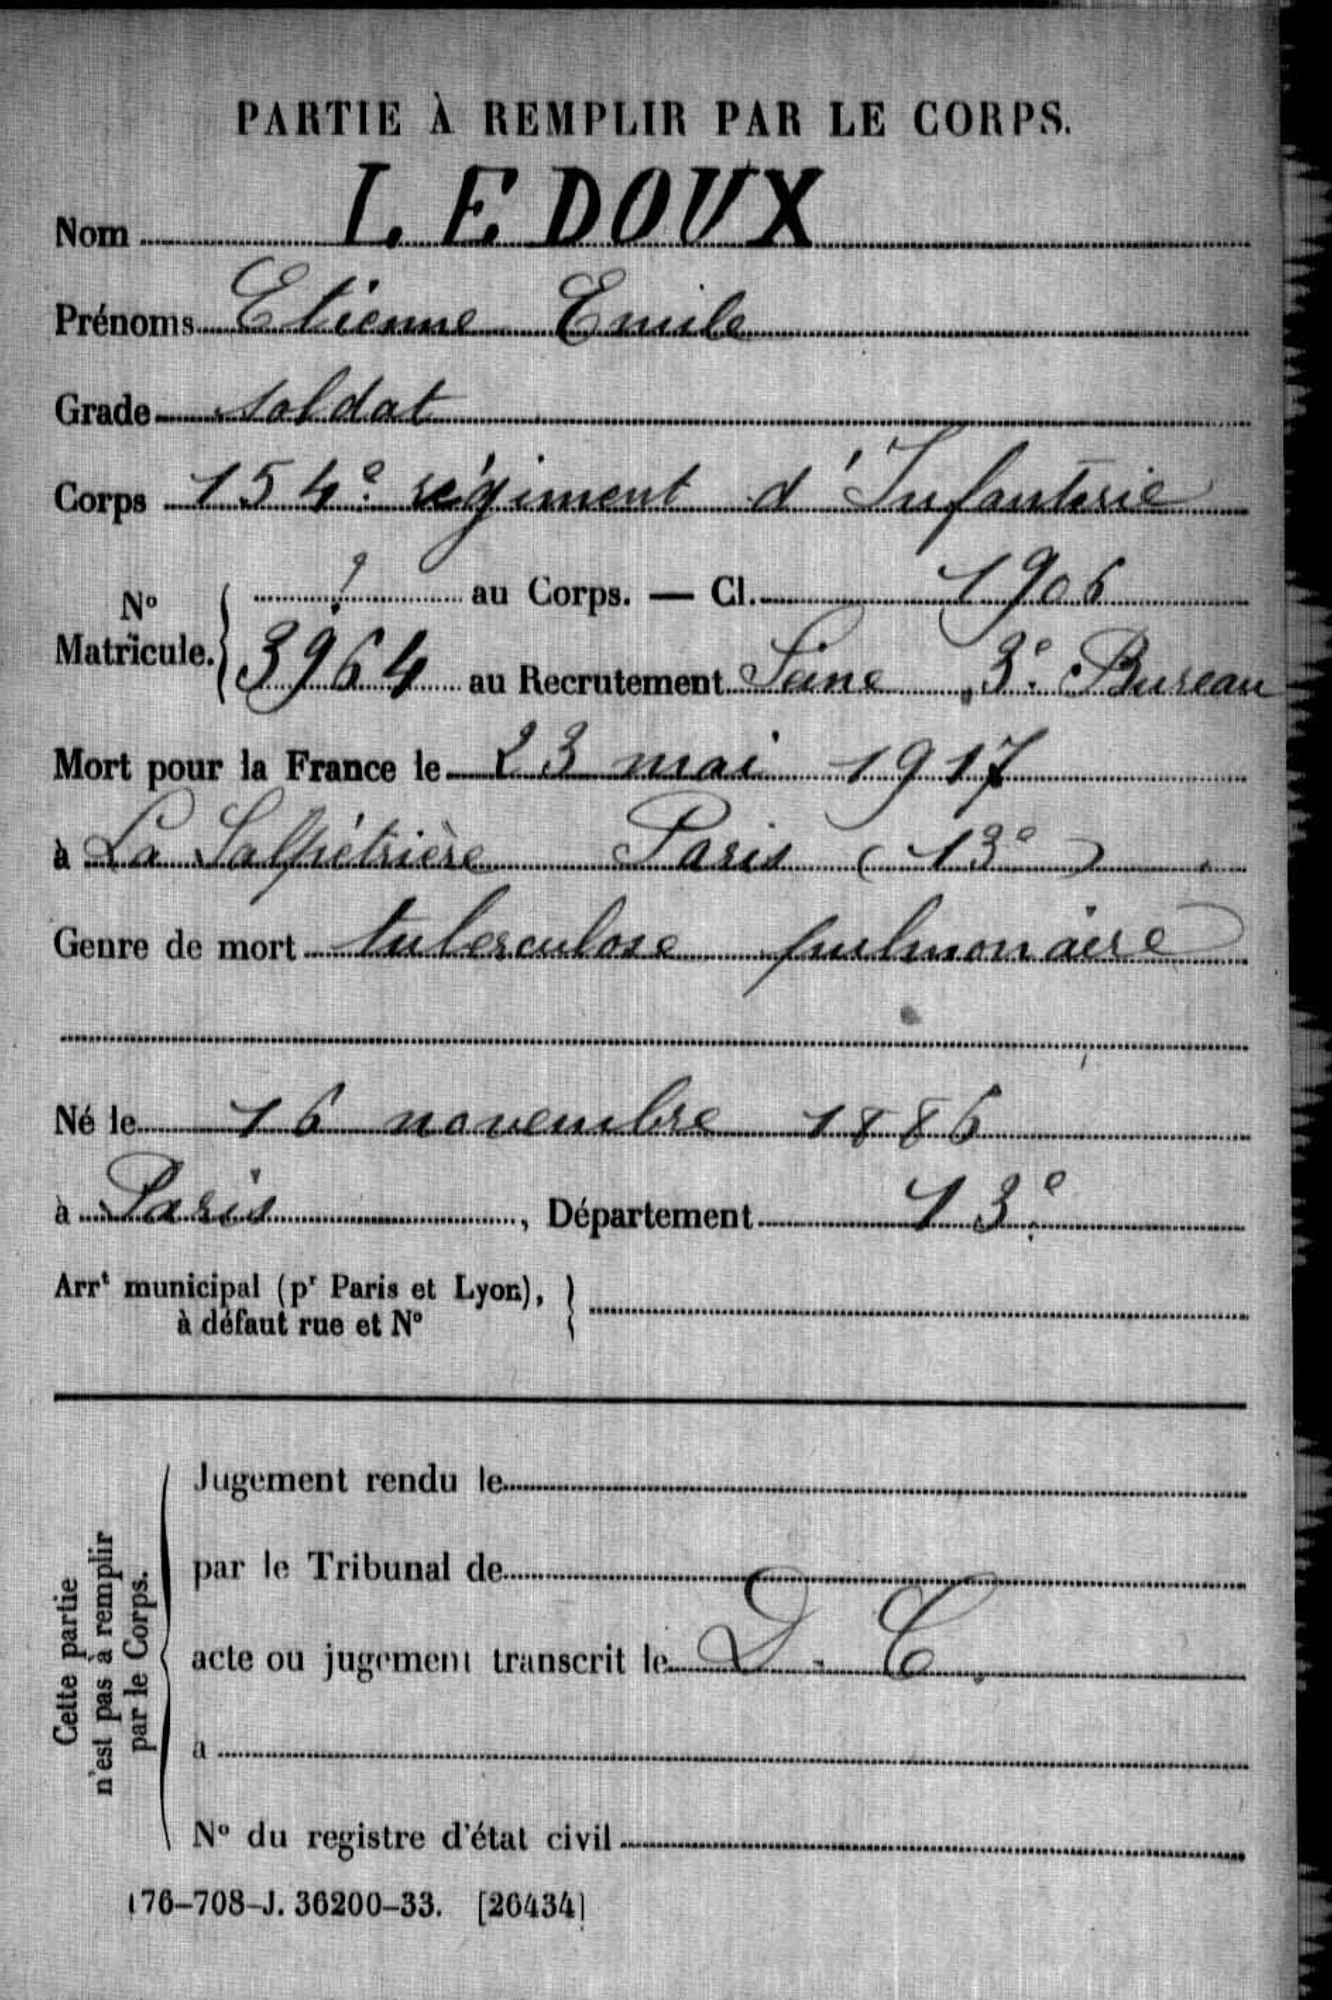 PARTIE À REMPLIR PAR LE CORPS.
Nom LEDOUX
Prénoms Etienne Emile
Grade soldat
Corps 154e régiment d'Infanterie
N° Matricule. { ? au Corps. — Cl. 1906
3964 au Recrutement Seine 3e Bureau
Mort pour la France le 23 mai 1917
à La Salpétrière Paris (13e)
Genre de mort tuberculose pulmonaire
Né le 16 novembre 1886
à Paris, Département 13e
Arrt municipal (pr Paris et Lyon), }
à défaut rue et N°
Cette partie
n'est pas à remplir
par le Corps.
Jugement rendu le
par le Tribunal de
acte ou jugement transcrit le D. C.
à
N° du registre d'état civil
176-708-J. 36200-33. [26434]